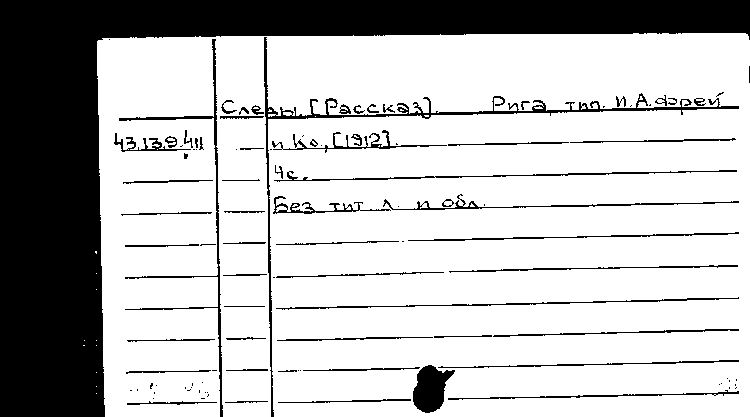 Следы. [Рассказ]. Рига, тип. И.А.Фрей
43.13.9.411 и Ко, [1912].
4с.
Без тит. л. и обл.